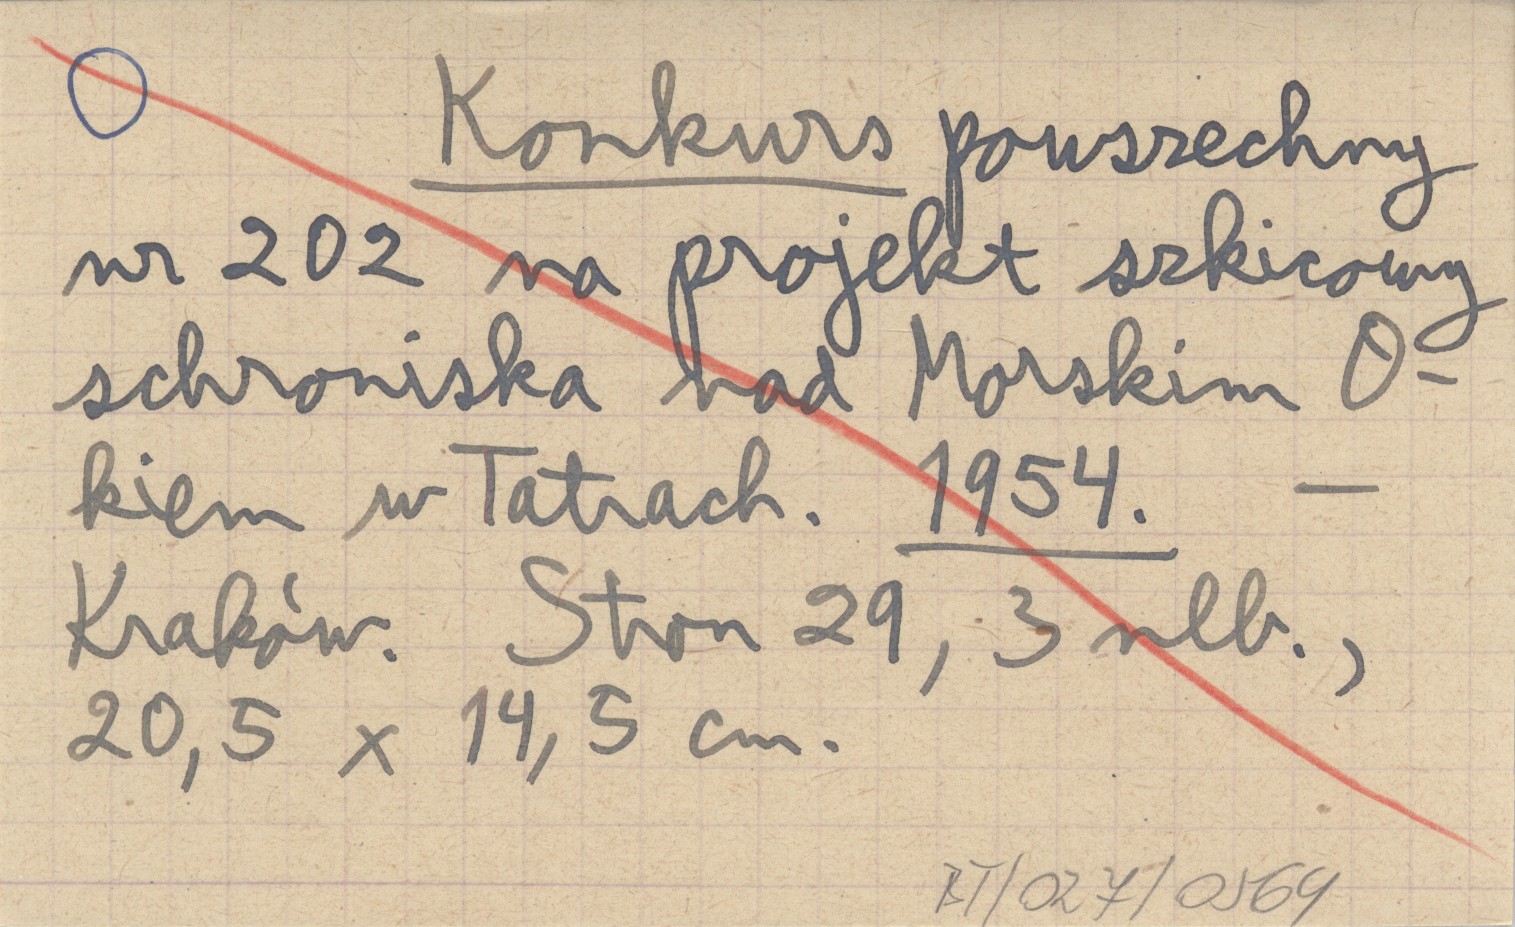 Konkurs powszechny
nr 202 na projekt szkicowy
schroniska nad Morskim O-
kiem w Tatrach. 1954. —
Kraków. Stron 29, 3 nlb.,
20,5 x 14,5 cm.
BT/027/0569